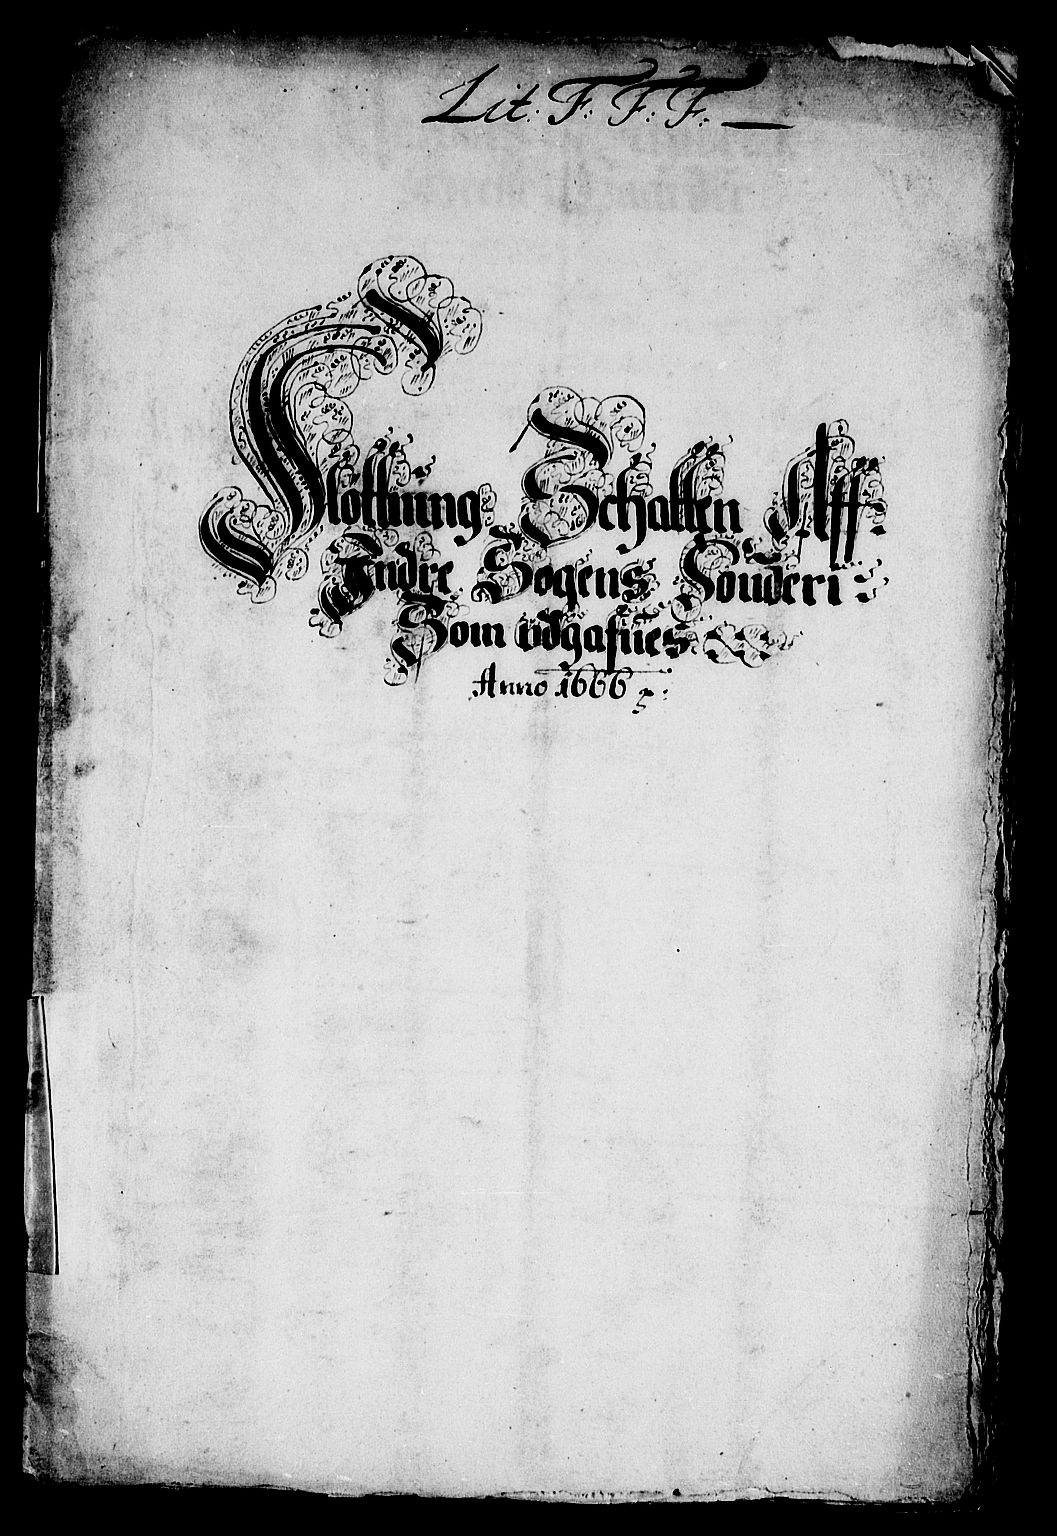 Lit: F: F: F:
Slottning Schatten Aff:
Indre Sogens Fonderi:
Som üdgafües
Anno 1666